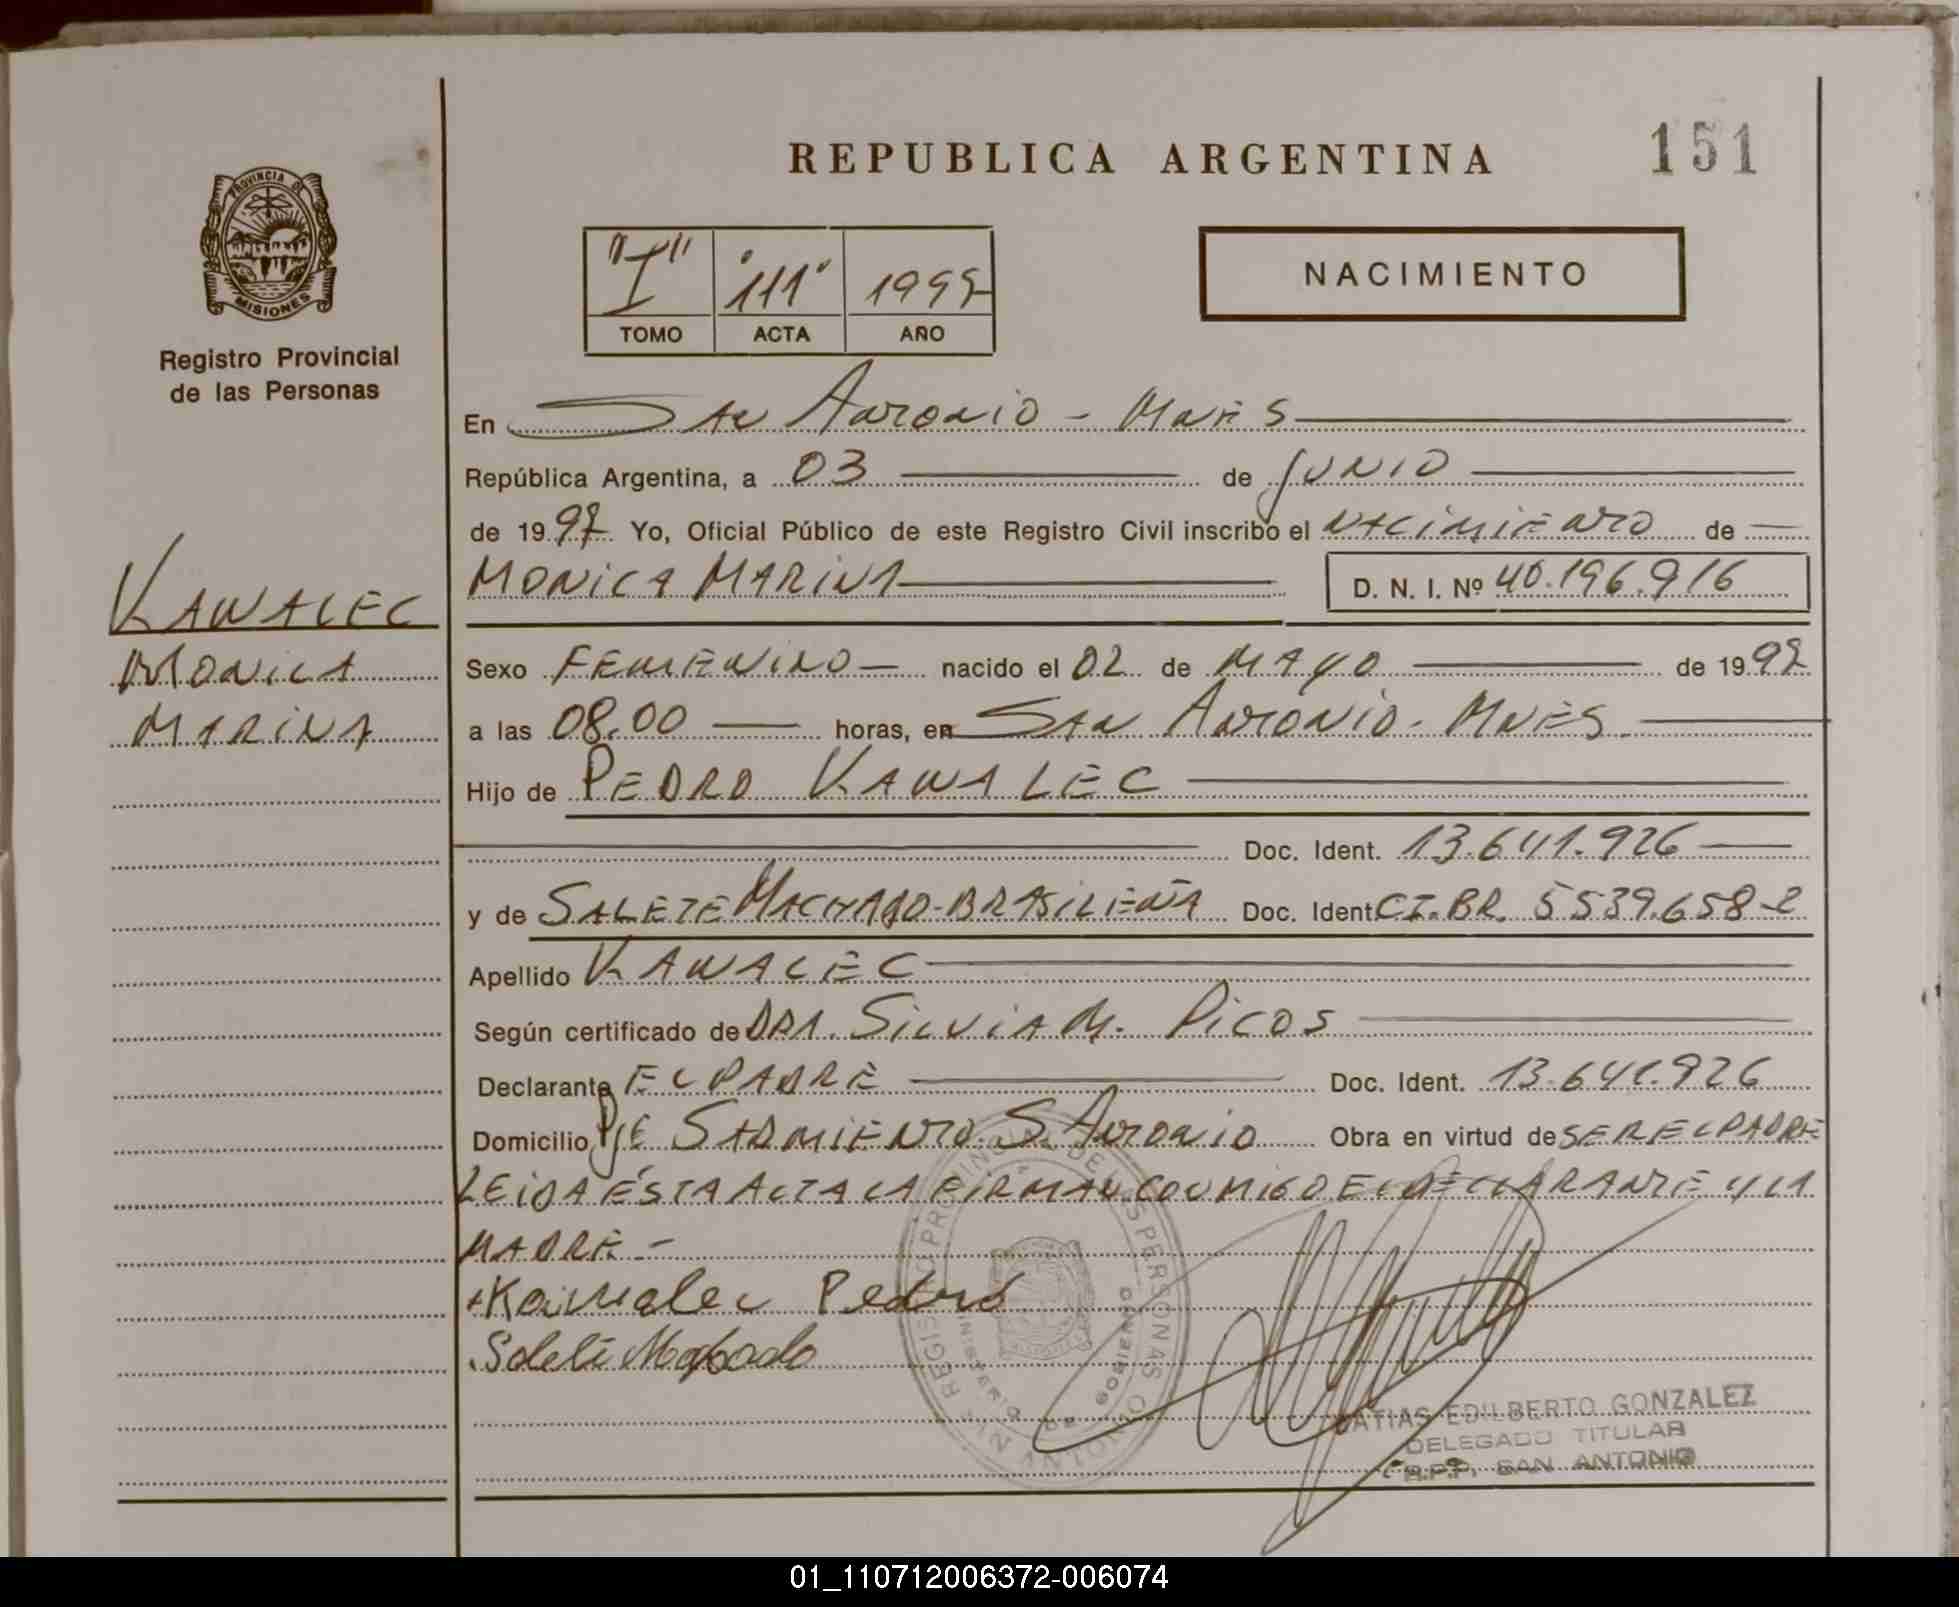 REPUBLICA ARGENTINA
151
PROVINCIA DE
MISIONES
Registro Provincial
de las Personas
"I" "111" 1997
TOMO ACTA AÑO
NACIMIENTO
En SAN ANTONIO - MNES
República Argentina, a 03 de JUNIO
de 1997 Yo, Oficial Público de este Registro Civil inscribo el NACIMIENTO de
MONICA MARINA D. N. I. Nº 40.196.916
KAWALEC
MONICA
MARINA
Sexo FEMENINO nacido el 02 de MAYO de 1997
a las 08.00 horas, en SAN ANTONIO - MNES.
Hijo de PEDRO KAWALEC
Doc. Ident. 13.641.926
y de SALETE MACHADO - BRASILEÑA Doc. Ident. CI. BR. 5539.658-2
Apellido KAWALEC
Según certificado de DRA. SILVIA M. PICOS
Declarante EL PADRE Doc. Ident. 13.641.926
Domicilio PJE SARMIENTO S. ANTONIO Obra en virtud de SER EL PADRE
LEIDA ÉSTA ACTA LA FIRMAN CONMIGO EL DECLARANTE Y LA
MADRE -
Kawalec Pedro
Salete Machado
REGISTRO PROVINCIAL DE LAS PERSONAS
MINISTERIO DE GOBIERNO
SAN ANTONIO
MATIAS EDILBERTO GONZALEZ
DELEGADO TITULAR
R.P.P. SAN ANTONIO
01_110712006372-006074